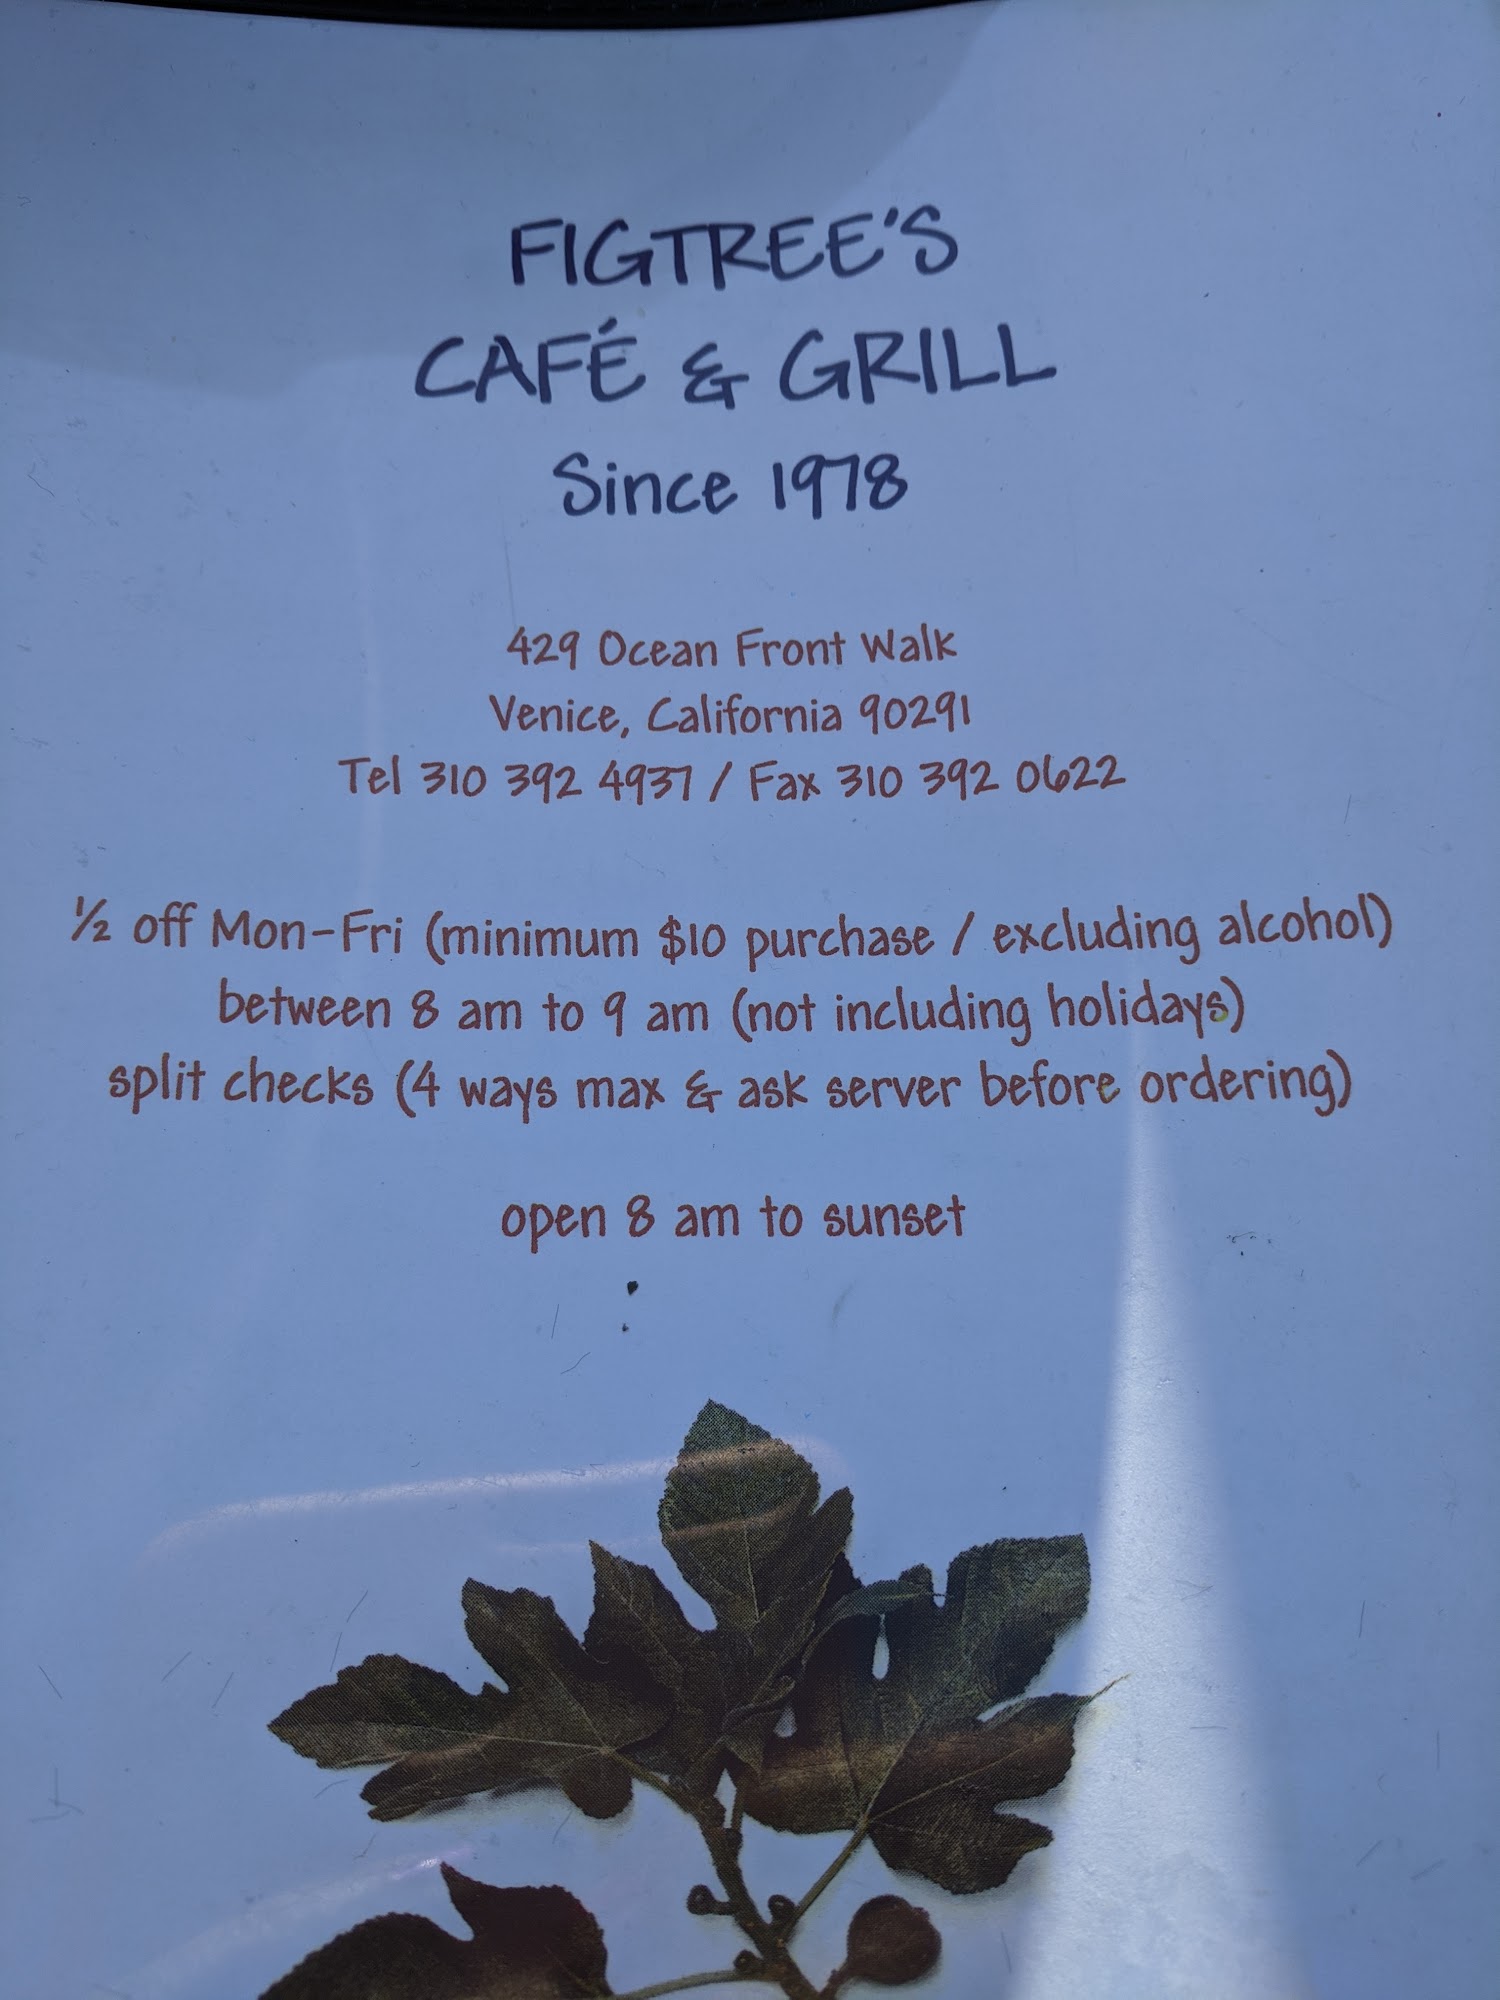 FIGTREE'S
CAFÉ & GRILL
Since 1978
429 Ocean Front Walk
Venice, California 90291
Tel 310 392 4937 / Fax 310 392 0622
½ off Mon-Fri (minimum $10 purchase / excluding alcohol)
between 8 am to 9 am (not including holidays)
split checks (4 ways max & ask server before ordering)
open 8 am to sunset